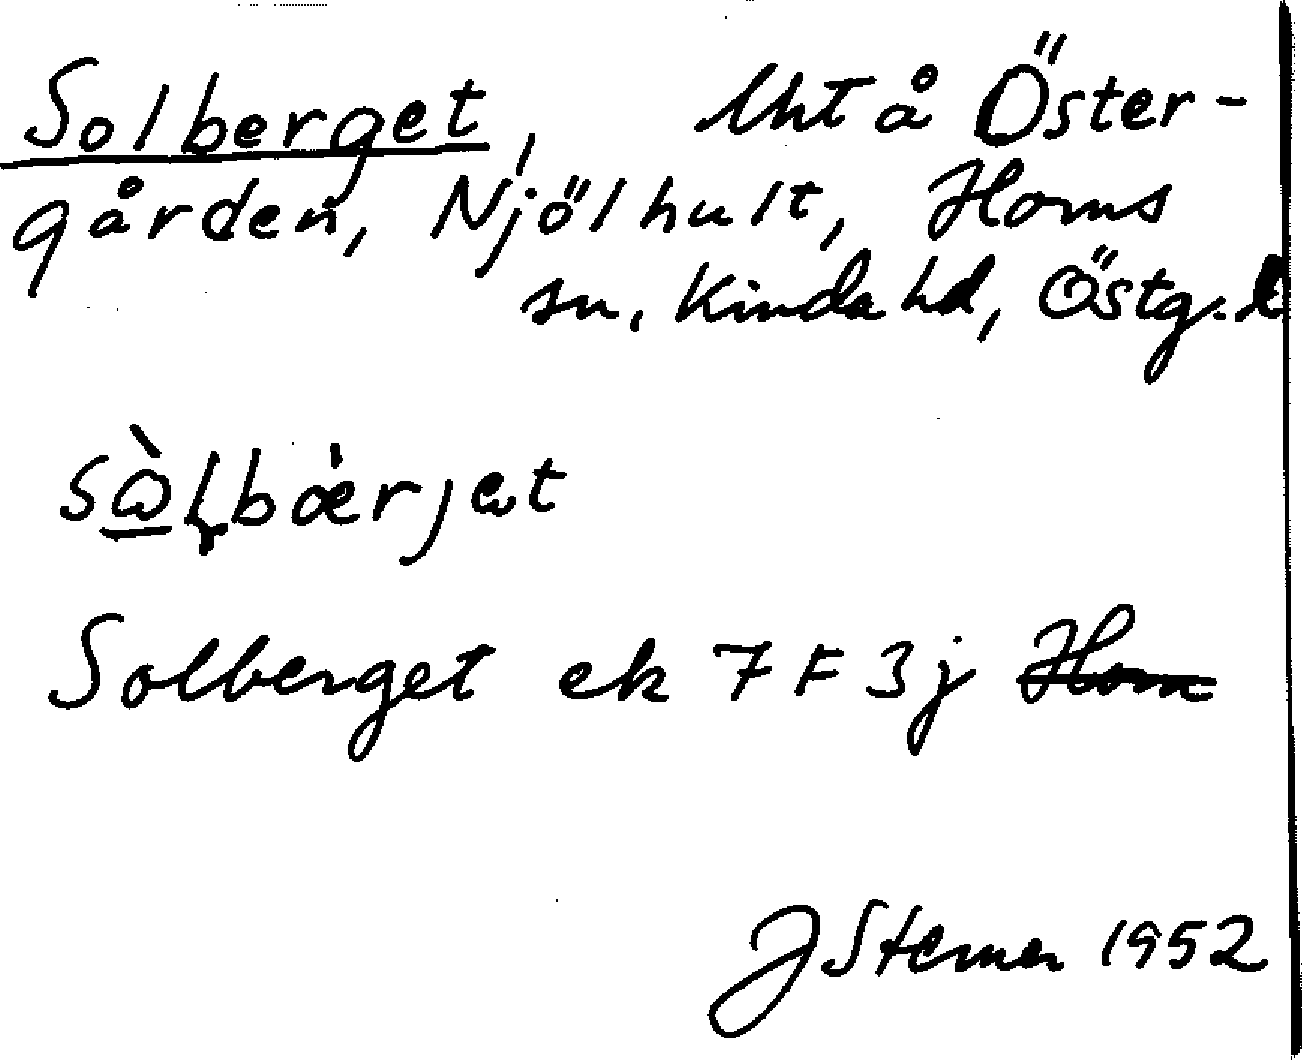 Solberget, lht å Öster-
gården, Njölhult, Horns
sn, Kinda hd, Östg. l
sὼlbæ̀rjət
Solberget ek 7 F 3j Horn
J Sterner 1952